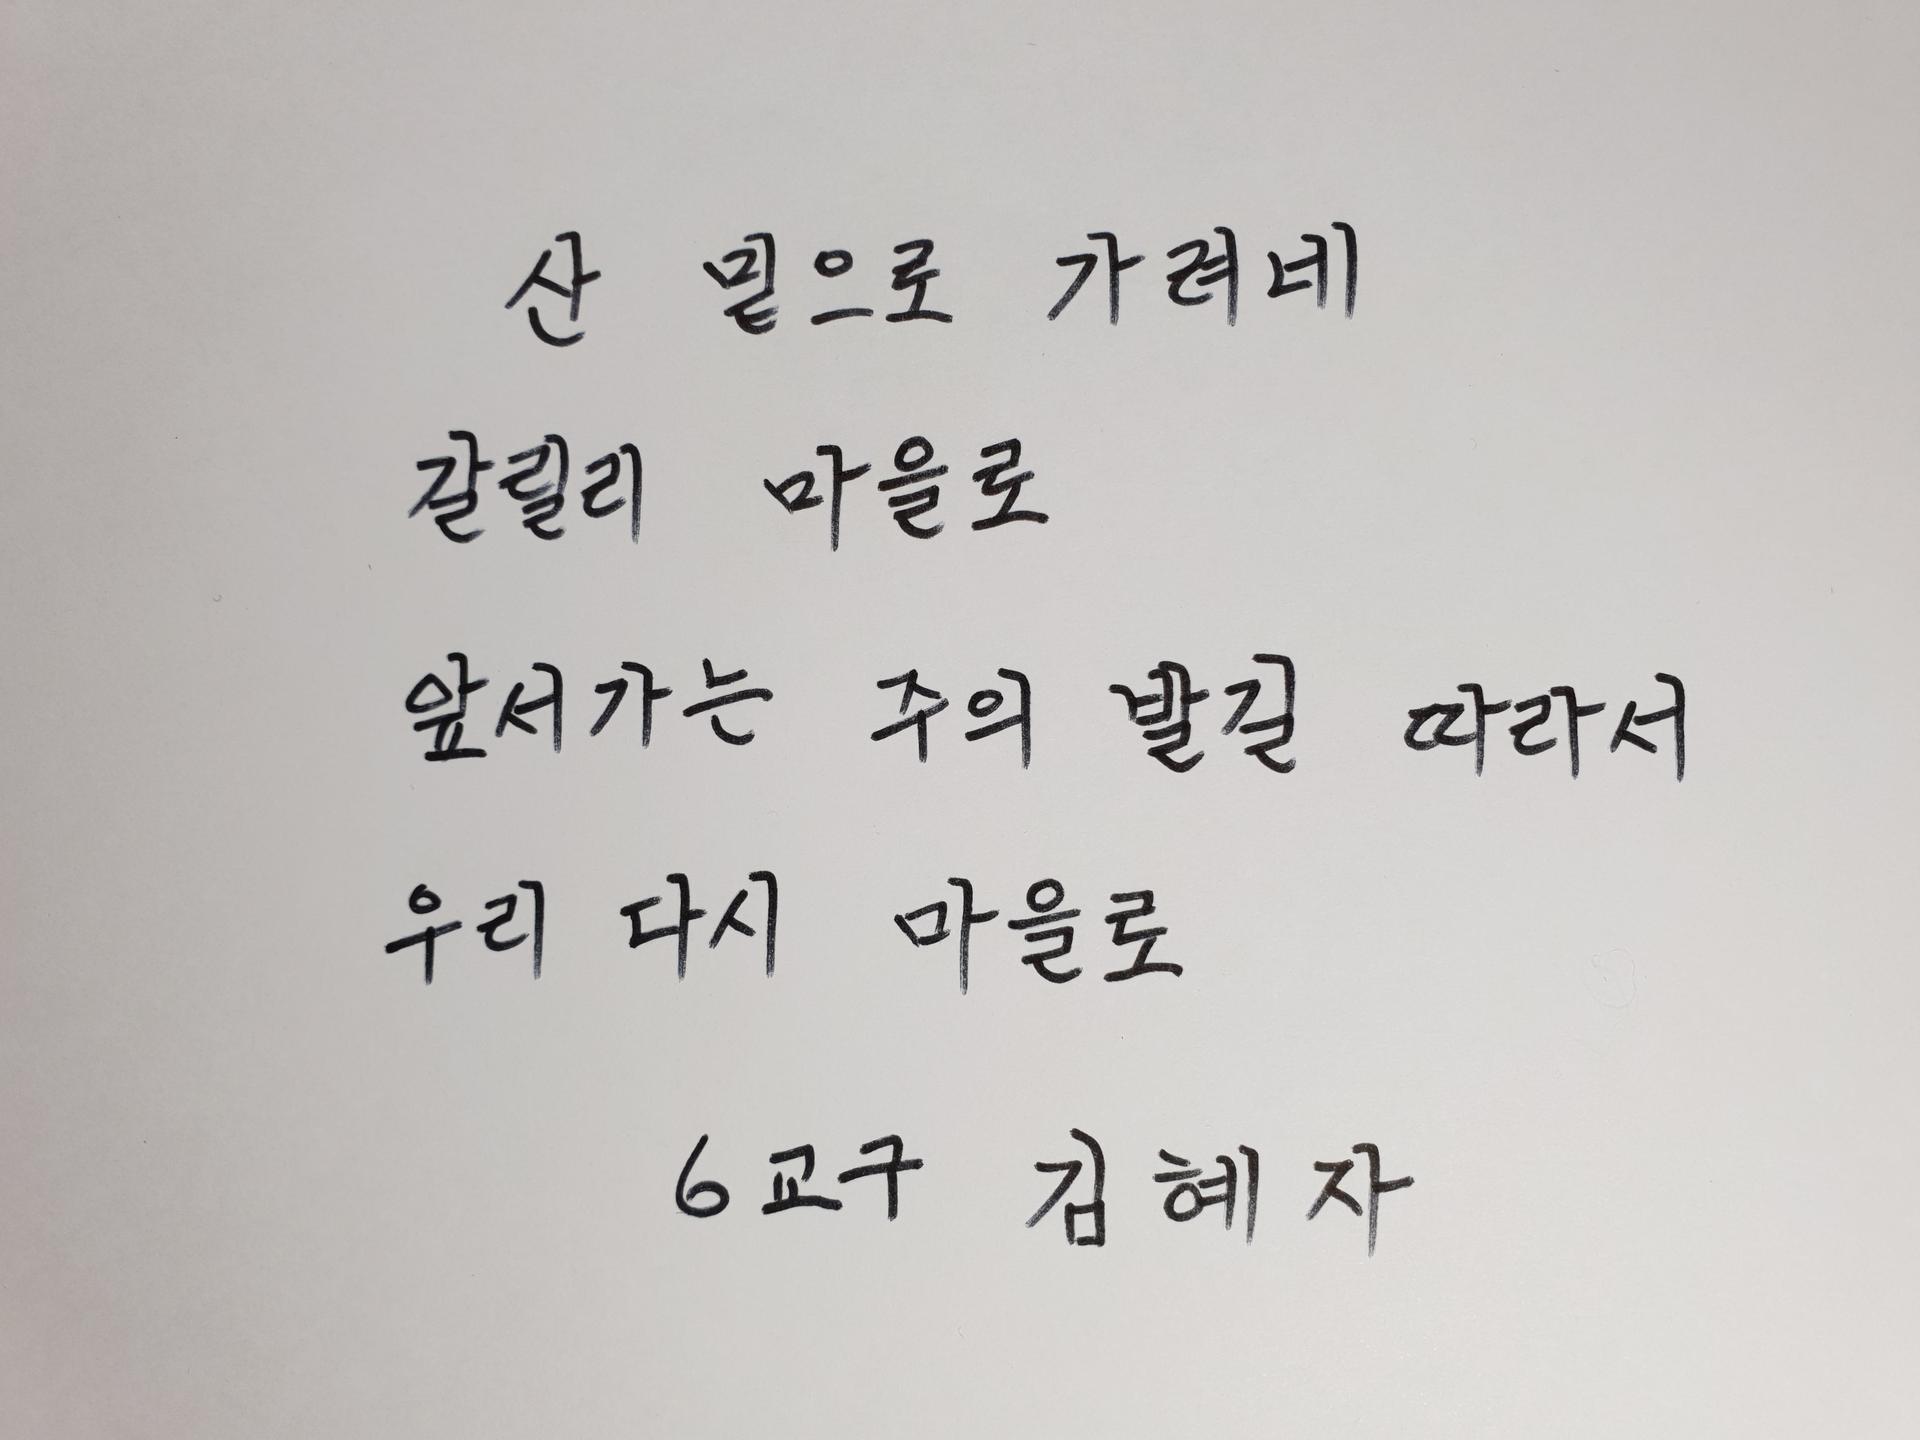 산 밑으로 가려네
갈릴리 마을로
앞서가는 주의 발길 따라서
우리 다시 마을로
6교구 김혜자